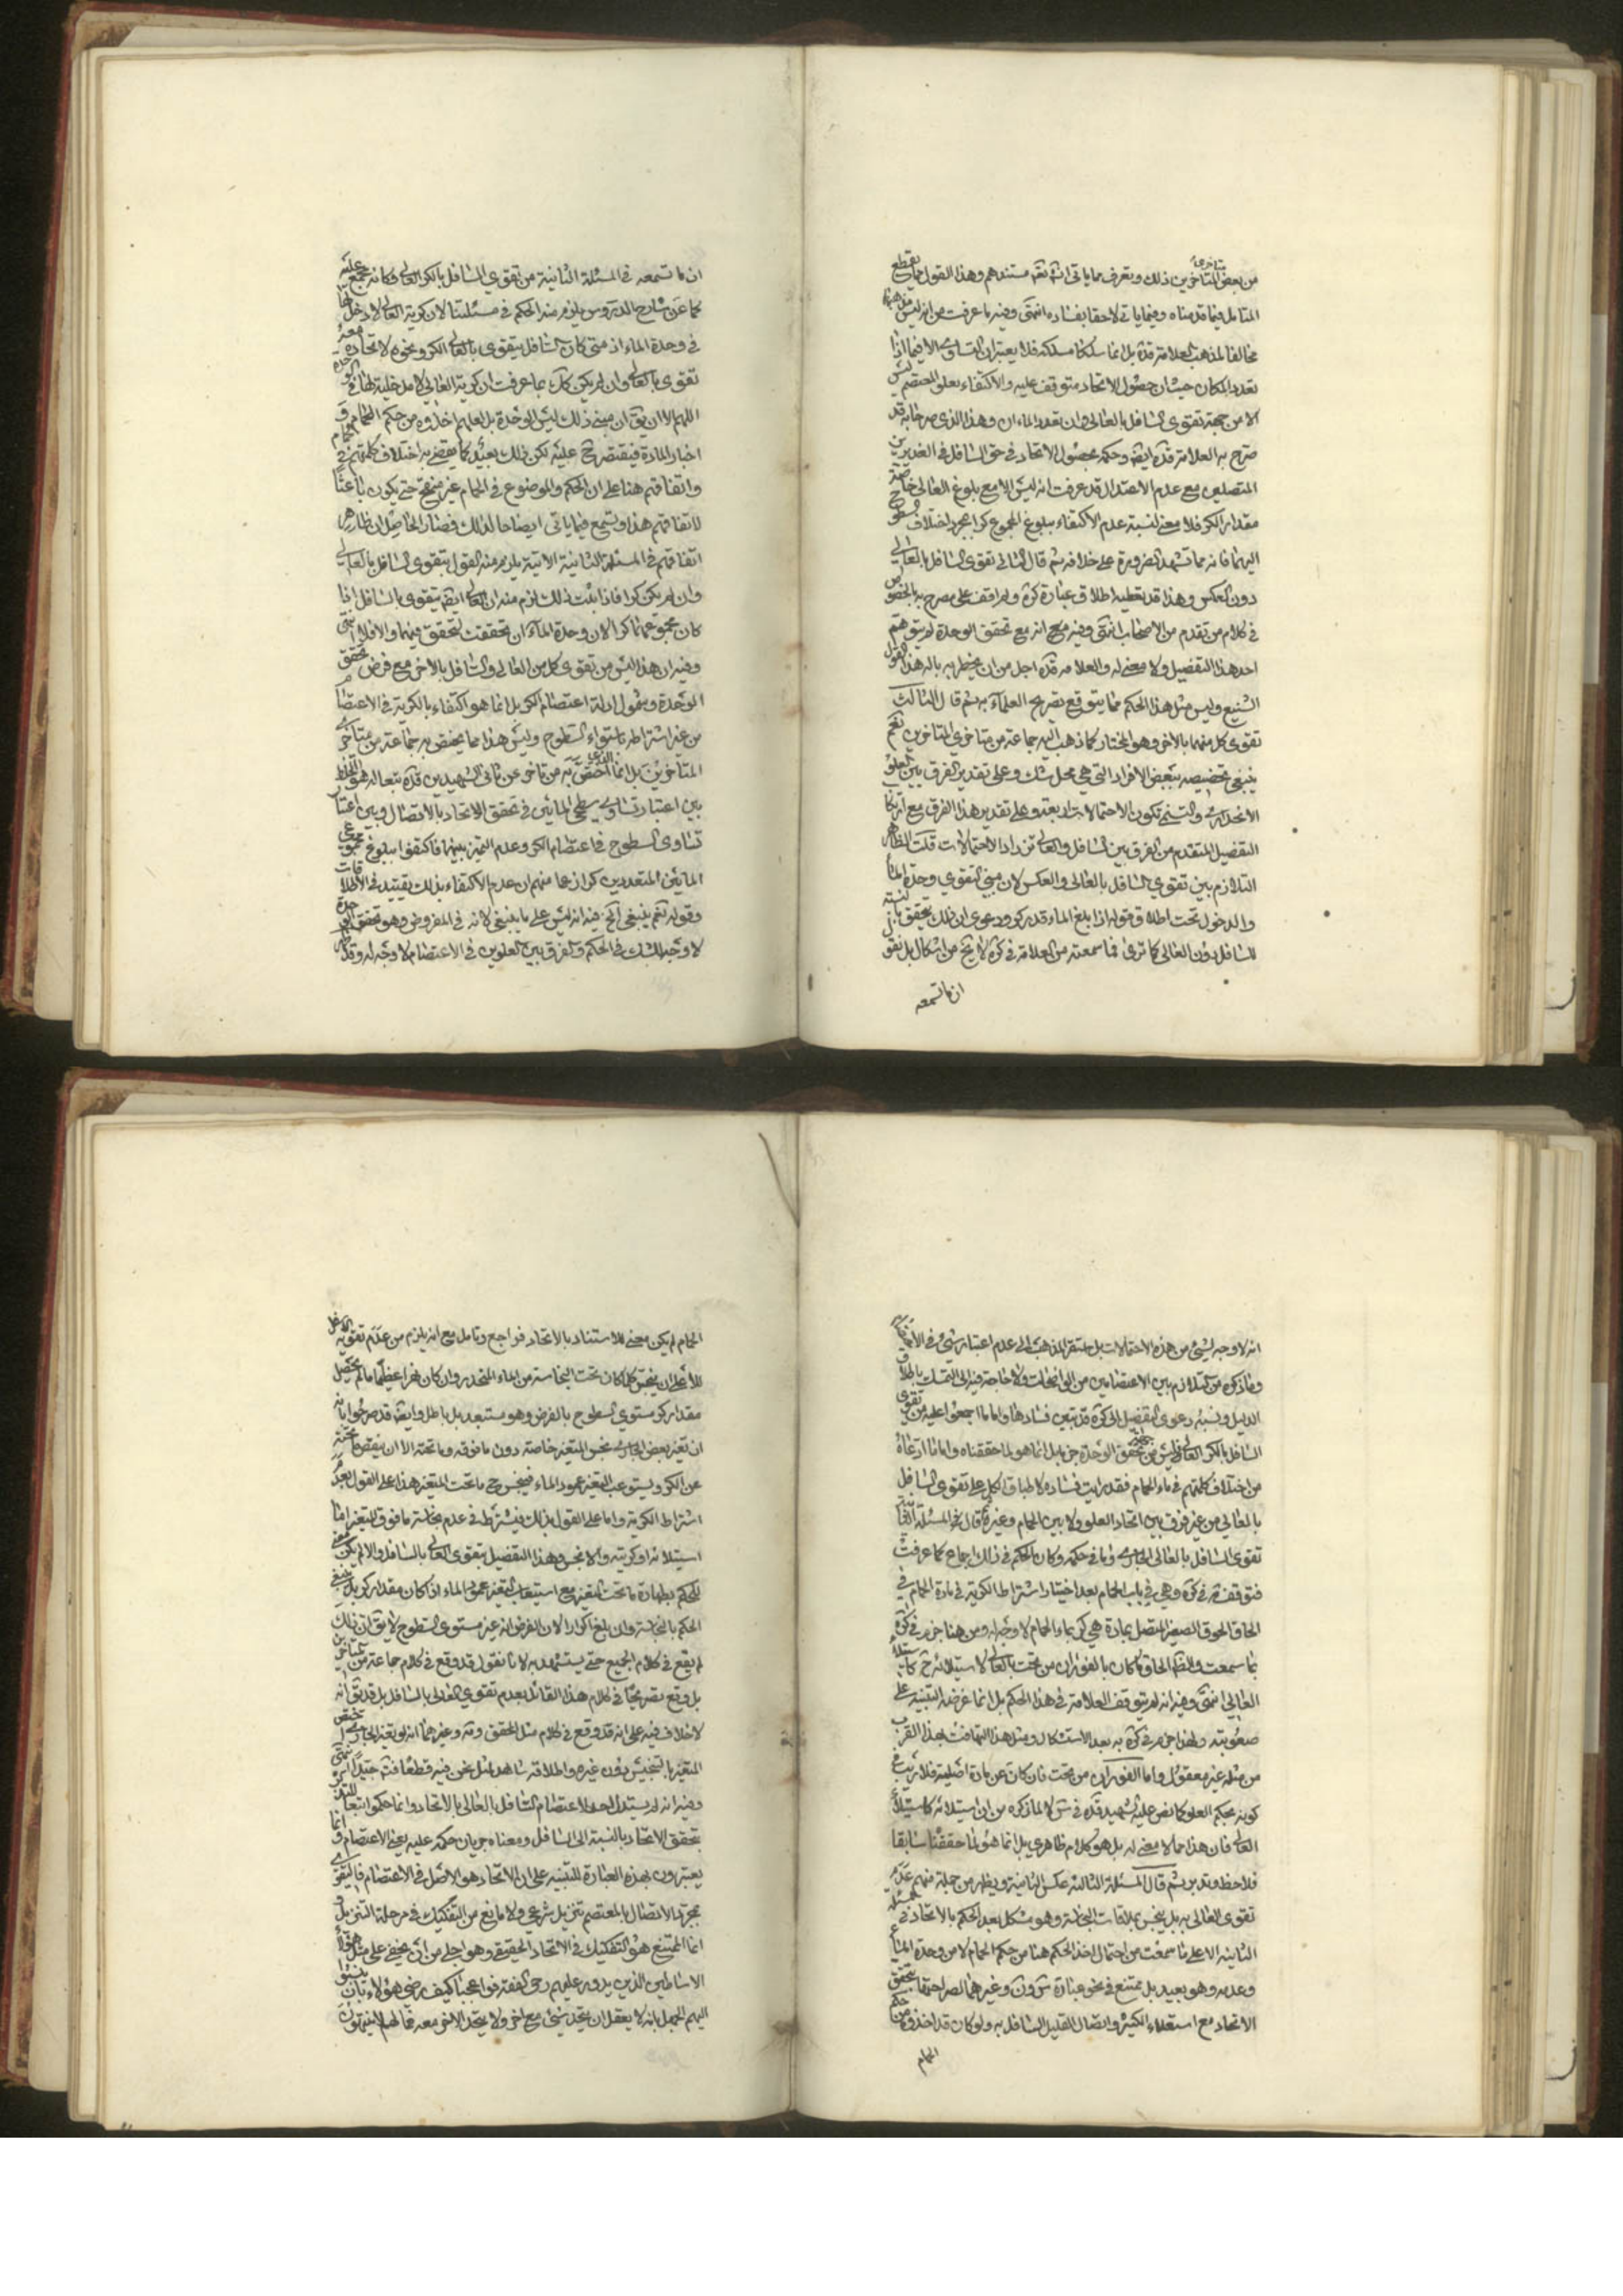 من بعض المتأخرين ذلك ويعرف مما ياتى انشه تعه مستندهم وهذا القول مما يقطع
المتامل فيما قدمناه وفيما ياتى لاحقا بفساده انتهى وفيه ما عرفت من انه ليس
مخالفا لمذهب العلامة قده بل انما سلكنا مسلكه فلا يعتبران التساوى الا فيما اذا
تعدد المكان حيث ان حصول الاتحاد متوقف عليه والاكتفاء بعلو المعتصم ليس
الا من جهة تقوى السافل بالعالى وان تعدد الماءان وهذا الذى صرحنا به قد
صرح به العلامة قده ايضه وحكمه بحصول الاتحاد فى حق السافل فى الغديرين
المتصلين مع عدم الاعتدال قد عرفت انه ليس الا مع بلوغ العالى خاصة
مقدار الكر فلا معنى لنسبة عدم الاكتفاء ببلوغ المجموع كرا بمجرد اختلاف السطوح
اليهما فانه مما تشهد الضرورة على خلافه ثم قال الثانى تقوى السافل بالعالى
دون العكس وهذا قد يعطيه اطلاق عبارة كره ولم اقف على مصرح به بالخصوص
فى كلام من تقدم من الاصحاب انتهى وفيه مع انه مع تحقق الوحدة لم يتوهم
احد هذا التفصيل ولا معنى له والعلامه قده اجل من ان يخطر بباله هذا القول
الشنيع وليس مثل هذا الحكم مما يتوقع تصريح العلماء به ثم قال الثالث
تقوى كل منهما بالاخر وهو المختار كما ذهب اليه جماعة من متاخرى المتاخرين نعم
ينبغى تخصيصه ببعض الافراد التى هى محل شك وعلى تقدير الفرق بين العلو
الانحدارى والتسنمى تكون الاحتمالات اربعة وعلى تقدير هذا الفرق مع
التفصيل المتقدم من الفرق بين السافل والعالى تزداد الاحتمالات قلت الظاهر
التلازم بين تقوى السافل بالعالى والعكس لان مبنى التقوى وحدة الماء
والدخول تحت اطلاق قوله اذا بلغ الماء قدر كر ودعوى ان ذلك يتحقق بالنسبة
للسافل دون العالى كما ترى فما سمعته من العلامة فى كره لا يخ من اشكال بل نقول
ان ما تسمعه
ان ما تسمعه فى المسئلة الثانية من تقوى السافل بالكر العالى وكانه مجمع عليه
كما عن شارح الدروس يلزم منه الحكم فى مسئلتنا لان كرية العالى لا دخل لها
فى وحدة الماء اذ متى كان السافل يتقوى بالعالى الكر ونحوه لاتحاده معه
تقوى بالعالى وان لم يكن كك بما عرفت ان كرية العالى لا مدخلية لها فى الوحدة
اللهم الا ان يق ان مبنى ذلك ليس الوحدة بل لعلهم اخذوه من حكم الحمام و
اخبار المادة فيقتصر ح عليه لكن ذلك بعيد كما يقضى به اختلاف كلمتهم فى حمام
واتفاقهم هنا على ان الحكم والموضوع فى الحمام غير منقح حتى يكون باعثا
لاتفاقهم هذا وتسمع فيما ياتى ايضاحا لذلك فصار الحاصل ان ظاهر
اتفاقهم فى المسئلة الثانية الاتية يلزم منه القول بتقوى السافل بالعالى
وان لم يكن كرا فاذا ثبت ذلك لزم منه ان العالى ايضه يتقوى بالسافل اذا
كان مجموعهما كرا لان وحدة الماء ان تحققت تحقق فيهما والا فلا انتهى
وفيه ان هذا ليس من تقوى كل من العالى والسافل بالاخر مع فرض تحقق
الوحدة وشمول ادلة اعتصام الكر بل انما هو اكتفاء بالكرية فى الاعتصام
من غير اشتراط باستواء السطوح وليس هذا مما يختص به جماعة من متاخرى
المتاخرين بل انما الذى اختص به من تاخر عن ثانى الشهيدين قده تبعا له هو الخلط
بين اعتبار تساوى سطحى المائين فى تحقق الاتحاد بالاتصال وبين اعتبار
تساوى السطوح فى اعتصام الكر وعدم التميز بينهما فاكتفوا ببلوغ مجموع
المائين المتعددين كرا زعما منهم ان عدم الاكتفاء بذلك تقييد فى الاطلاقات
وقوله نعم ينبغى الخ فيه انه ليس على ما ينبغى لانه فى المفروض وهو تحقق الوحدة
لا وجه للشك فى الحكم والفرق بين العلوين فى الاعتصام لا وجه له وقد ظهر
انه لا وجه لشىء من هذه الاحتمالات بل استقر المذهب على عدم اعتبار شىء فى الاتحاد
وما ذكره من التلازم بين الاعتصامين من الواضحات ولا حاجة فيه الى التمسك باطلاق
الدليل ونسبة دعوى التفصيل الى كره قد تبين فسادها واما ما اجمعوا عليه من تقوى
السافل بالكر العالى فليس من جهة تحقق الوحدة جزما بل انما هو لما حققناه واما ما ادعاه
من اختلاف كلمتهم فى ماء الحمام فقد رايت فساده لاطباق الكل على تقوى السافل
بالعالى من غير فرق بين اتحاد العلو ولا بين الحمام وغيره ثم قال فى المسئلة الثانية
تقوى السافل بالعالى الجارى وما فى حكمه وكان الحكم فى ذلك اجماع كما عرفت
فتوقفه فى كره وهى فى باب الحمام بعد اختيار اشتراط الكرية فى مادة الحمام فى
الحاق الحوض الصغير المتصل بمادة هى كر بماء الحمام لا وجه له ومن هنا جزم فى كره
بما سمعت والظه الحاق ما كان بالفوران من تحت بالعالى لاستيلائه ح كاستيلاء
العالى انتهى وفيه انه لم يتوقف العلامة فى هذا الحكم بل انما غرضه التنبيه على
صعوبته ولهذا جزم فى كره به بعد الاستشكال ومثل هذا التهافت بهذا القرب
من مثله غير معقول واما الفوران من تحت فان كان عن مادة اصلية فلا ريب فى
كونه بحكم العلو كما نص عليه الشهيد قده فى س لا لما ذكره من ان استيلائه كاستيلاء
العالى فان هذا مما لا معنى له بل هو كلام ظاهرى بل انما هو لما حققنا سابقا
فلاحظ وتدبر ثم قال المسئلة الثالثة عكس الثانية ويظهر من جملة منهم عدم
تقوى العالى به بل ينجس بملاقات النجاسة وهو مشكل بعد الحكم بالاتحاد فى المسئلة
الثانية الا على ما سمعت من احتمال اخذ الحكم هنا من حكم الحمام لا من وحدة الماء
وعدمه وهو بعيد بل ممتنع فى نحو عبارة س ون وغيرهما لصراحتها بتحقق
الاتحاد مع استعلاء الكثير واتصال القليل السافل به ولو كان قد اخذوه من حكم
الحمام
الحمام لم يكن معنى للاستناد بالاتحاد فراجع وتامل مع انه يلزم من عدم تقوية الاسفل
للاعلى ان ينجس كلما كان تحت النجاسة من الماء المنحدر وان كان نهرا عظيما ما لم يحصل
مقدار كر مستوى السطوح بالفرض وهو مستبعد بل باطل وايضه قد صرحوا بانه
ان تغير بعض الجارى نجس المتغير خاصة دون ما فوقه وما تحته الا ان ينقص ما تحته
عن الكر ويستوعب التغير عمود الماء فينجس ح ما تحت المتغير هذا على القول بعدم
اشتراط الكرية واما على القول بذلك فيشترط فى عدم نجاسة ما فوق المتغير اما
استيلائه او كريته والا نجس وهذا التفصيل بتقوى العالى بالسافل والا لم يكن معنى
للحكم بطهارة ما تحت المتغير مع استيعاب التغير عمود الماء اذا كان مقدار كر بل ينبغى
الحكم بالنجاسة وان بلغ اكرارا لان الفرض انه غير مستوى السطوح لا يق ان ذلك
لم يقع فى كلام الجميع حتى يستشهد به لانا نقول قد وقع فى كلام جماعة من المتاخرين
بل وقع تصريحا فى كلام هذا القائل بعدم تقوى العالى بالسافل بل قد يق انه
لا خلاف فيه على انه قد وقع فى كلام مثل المحقق وغيرهما انه لو تغير الجارى اختص
المتغير بالتنجيس دون غيره واطلاقه شاهد لمثل نحن فيه قطعا فته جيدا انتهى
وفيه انه لم يستدل احد لاعتصام السافل بالعالى بالاتحاد وانما حكموا
بتحقق الاتحاد بالنسبة الى السافل ومعناه جريان حكمه عليه يعنى الاعتصام وانما
يعتبرون بهذه العبارة للتنبيه على ان الاتحاد هو الاصل فى الاعتصام فالتقوى
بمجرد الاتصال بالمعتصم تنزيل شرعى ولا مانع من التفكيك فى مرحلة التنزيل
انما الممتنع هو التفكيك فى الاتحاد الحقيقى وهو اجلى من ان يخفى على مثل هؤلاء
الاساطين الذين يدور عليهم رحى الفقه فوا عجبا كيف رضى هؤلاء بان ينسبوا
اليهم الجهل بانه لا يعقل ان يتحد شىء مع اخر ولا يتحد الاخر معه فما لهم لا يتنبهون